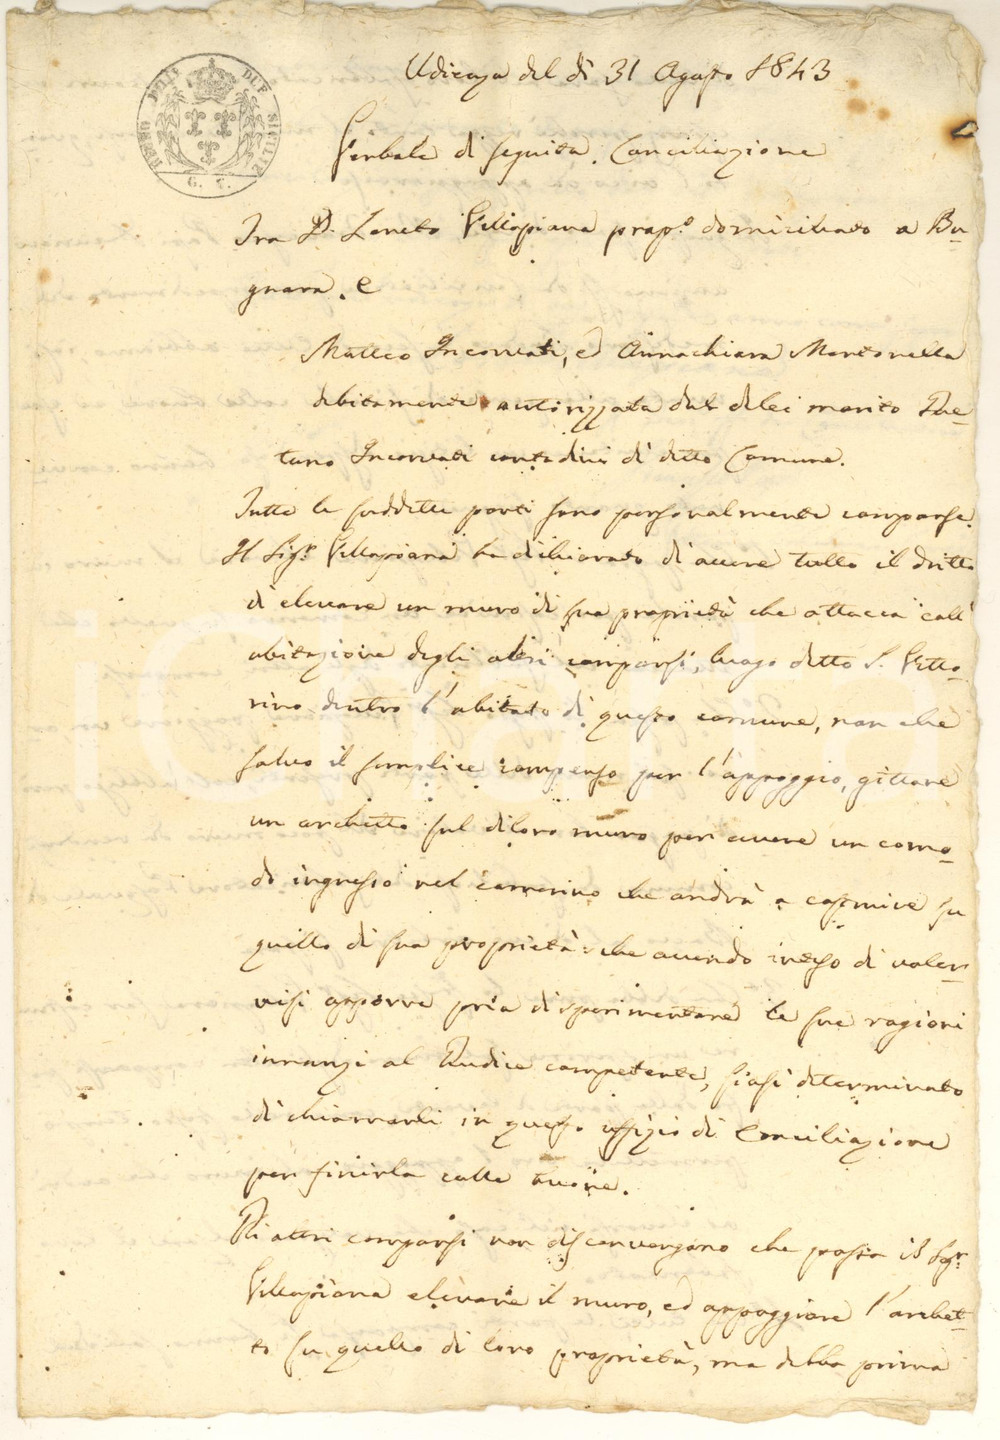 REGNO DELLE DUE SICILIE
G. 
Udienza del dì 31 Agosto 1843
Verbale di seguita Conciliazione
Tra D. Loreto Villapiana prop.o domiciliato a Bu=
gnara. e
Matteo Incorvati, ed Annachiara Mortorella
debitamente autorizzata dal di lei marito Gae=
tano Incorvati contadini di detto Comune.
Tutte le suddette parti sono personalmente comparse.
Il Sig.r Villapiana ha dichiarato di avere tutto il dritto
di elevare un muro di sua proprietà che attacca coll'
abitazione degli altri comparsi, luogo detto S. Vitto=
rino dentro l'abitato di questo comune, non che
salvo il semplice compenso per l'appoggio, gittare
un archetto sul di loro muro per avere un como=
do ingresso nel camerino che andrà a costruire su
quello di sua proprietà: che avendo inteso di voler=
visi opporre pria di sperimentare le sue ragioni
innanzi al Giudice competente, siasi determinato
di chiamarli in questo uffizio di Conciliazione
per finirla colle buone.
Gli altri comparsi non disconvengono che possa il Sig.r
Villapiana elevare il muro, ed appoggiare l'archet=
to su quello di loro proprietà, ma debba prima